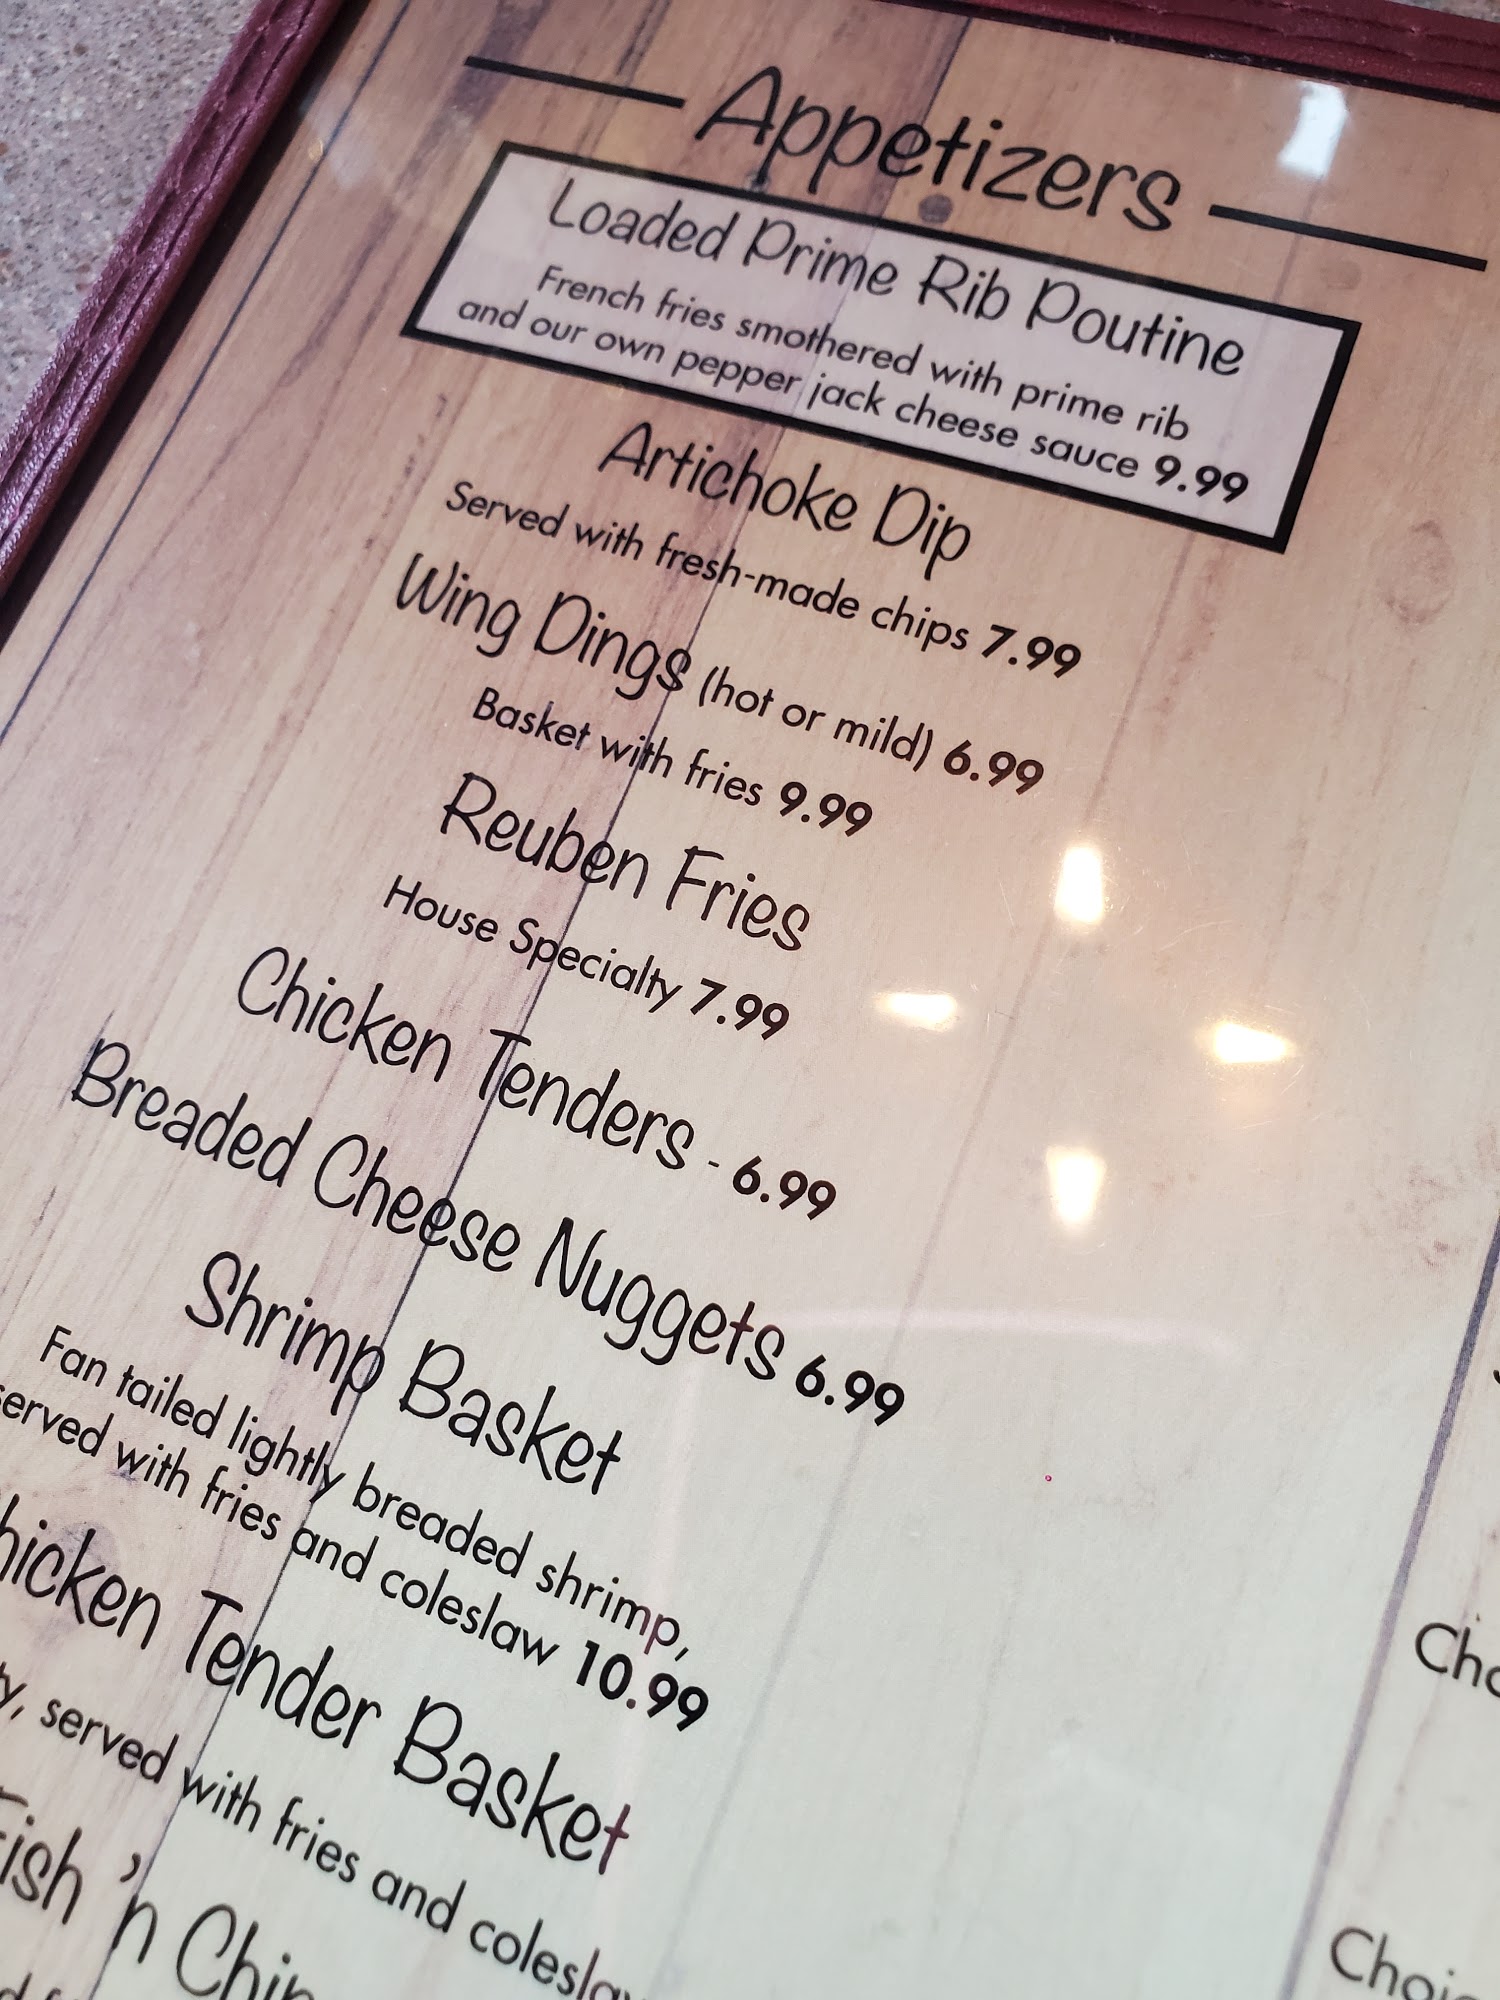 Appetizers
Loaded Prime Rib Poutine
French fries smothered with prime rib
and our own pepper jack cheese sauce 9.99
Artichoke Dip
Served with fresh-made chips 7.99
Wing Dings (hot or mild) 6.99
Basket with fries 9.99
Reuben Fries
House Specialty 7.99
Chicken Tenders - 6.99
Breaded Cheese Nuggets 6.99
Shrimp Basket
Fan tailed lightly breaded shrimp,
served with fries and coleslaw 10.99
hicken Tender Basket
y, served with fries and coleslaw
Fish 'n Chip
Cho
Choic